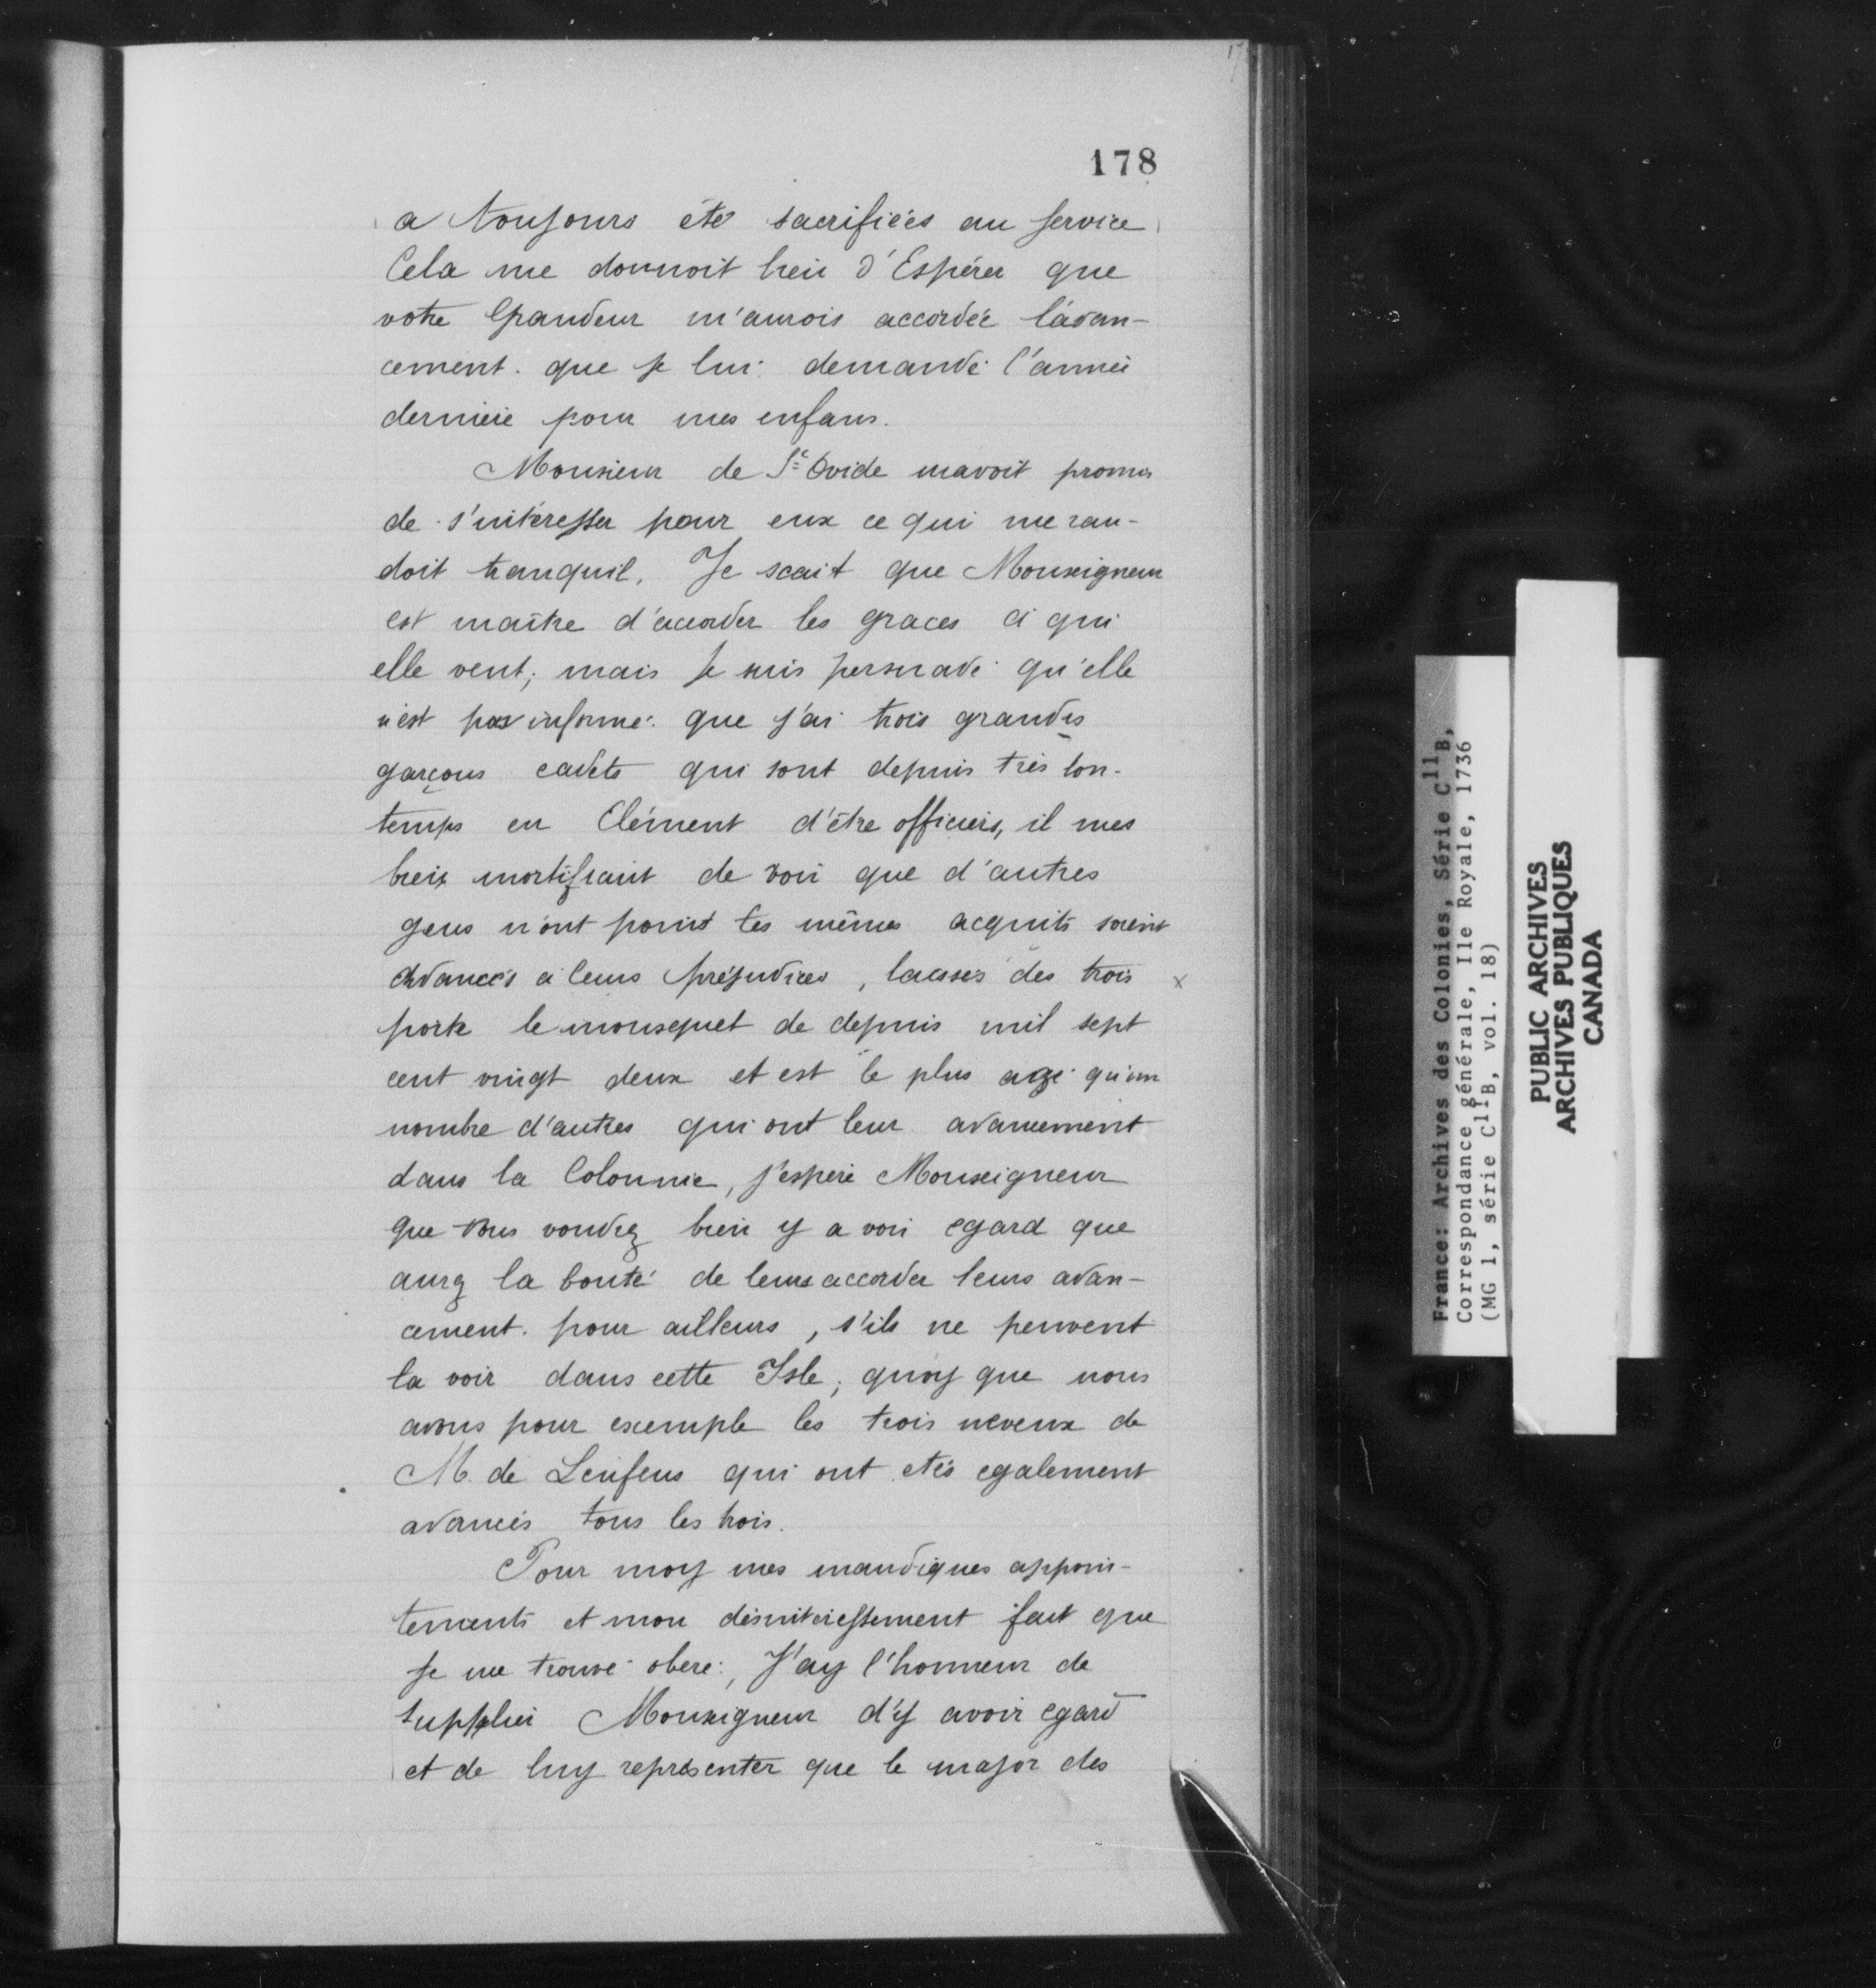 178
a toujours été sacrifiées au service
Cela me donnoit lieu d'Espérer que
votre Grandeur m'aurois accordée l'avan-
cement. que je lui demandé l'année
derniere pour mes enfans.
Monsieur de St Ovide mavoit promis
de s'intéresser pour eux ce qui me ran-
doit tranquil. Je scait que Monseigneur
est maître d'accorder les graces a qui
elle veut; mais je suis persuadé qu'elle
n'est pas informé que j'ai trois grandes
garçons cadets qui sont depuis très lon-
temps en Elément d'être officiers, il mes
bien mortifiant de voir que d'autres
gens n'ont point les mêmes acquits soient
advancés a leurs préjudices, lainés des trois x
porte le mousquet de depuis mil sept
cent vingt deux et est le plus agé qu'un
nombre d'autres qui ont leur avancement
dans la Colonnie, j'espere Monseigneur
que vous voudrez bien y a voir egard que
aurez la bonté de leurs accorder leurs avan-
cement. pour ailleurs, s'ils ne peuvent
la voir dans cette Isle; quoy que nous
avons pour exemple les trois neveux de
M. de Lenfens qui ont etés egalement
avancés tous les trois.
Pour moy mes maudiques appoin-
tements et mon désinteressement fait que
je me trouve oberé, J'ay l'honneur de
supplier Monseigneur d'y avoir egard
et de luy representer que le major des
France: Archives des Colonies, Série C11B,
Correspondance générale, Ile Royale, 1736
(MG 1, série C11B, vol. 18)
PUBLIC ARCHIVES
ARCHIVES PUBLIQUES
CANADA